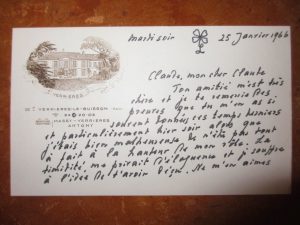 VERRIÈRES
VERRIÈRES-LE-BUISSON
920
MASSY-VERRIÈRES
ANTONY
mardi soir 25 janvier 1966
Claude, mon cher Claude
Ton amitié m'est très
chère et je te remercie des
preuves que tu m'en as si
souvent données ces temps derniers
et particulièrement hier soir alors que
j'étais bien malheureuse de n'être pas tout
à fait à la hauteur de mon rôle. La
timidité me privait d'éloquence et je souffre
à l'idée de t'avoir déçu. Ne m'en aimes